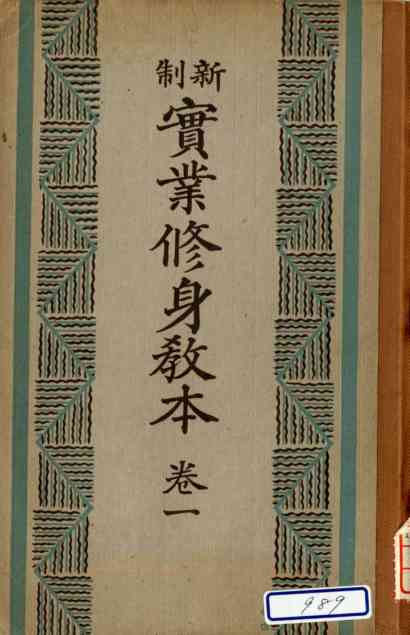 新制
實業修身教本
卷一
989